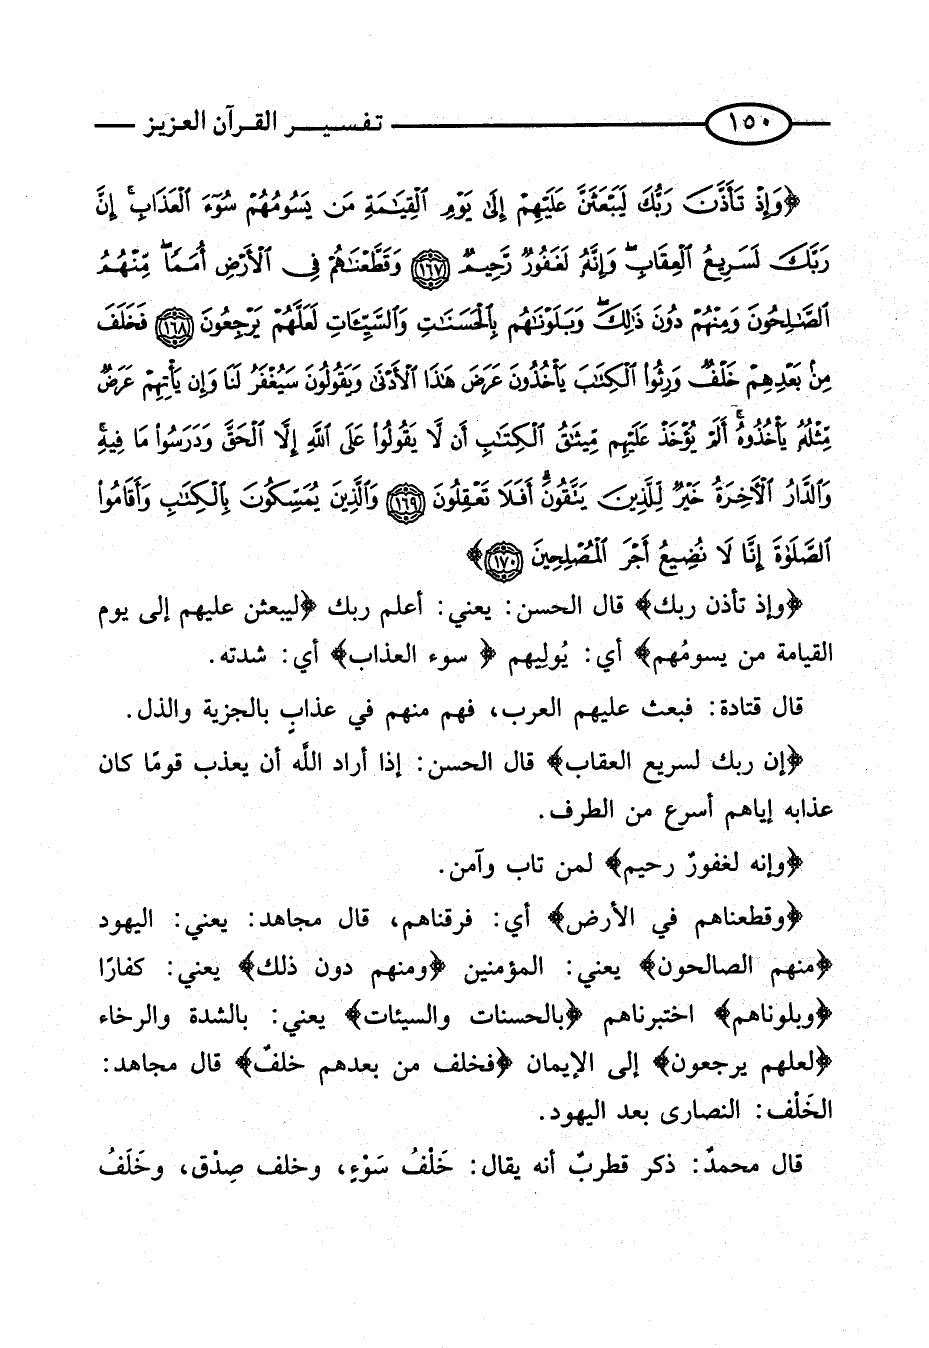 ١٥٠ تفسير القرآن العزيز
﴿وَإِذْ تَأَذَّنَ رَبُّكَ لَيَبْعَثَنَّ عَلَيْهِمْ إِلَىٰ يَوْمِ الْقِيَامَةِ مَن يَسُومُهُمْ سُوءَ الْعَذَابِ ۗ إِنَّ
رَبَّكَ لَسَرِيعُ الْعِقَابِ ۖ وَإِنَّهُ لَغَفُورٌ رَّحِيمٌ ١٦٧ وَقَطَّعْنَاهُمْ فِي الْأَرْضِ أُمَمًا ۖ مِّنْهُمُ
الصَّالِحُونَ وَمِنْهُمْ دُونَ ذَٰلِكَ ۖ وَبَلَوْنَاهُم بِالْحَسَنَاتِ وَالسَّيِّئَاتِ لَعَلَّهُمْ يَرْجِعُونَ ١٦٨ فَخَلَفَ
مِن بَعْدِهِمْ خَلْفٌ وَرِثُوا الْكِتَابَ يَأْخُذُونَ عَرَضَ هَٰذَا الْأَدْنَىٰ وَيَقُولُونَ سَيُغْفَرُ لَنَا وَإِن يَأْتِهِمْ عَرَضٌ
مِّثْلُهُ يَأْخُذُوهُ ۚ أَلَمْ يُؤْخَذْ عَلَيْهِم مِّيثَاقُ الْكِتَابِ أَن لَّا يَقُولُوا عَلَى اللَّهِ إِلَّا الْحَقَّ وَدَرَسُوا مَا فِيهِ ۗ
وَالدَّارُ الْآخِرَةُ خَيْرٌ لِّلَّذِينَ يَتَّقُونَ ۗ أَفَلَا تَعْقِلُونَ ١٦٩ وَالَّذِينَ يُمَسِّكُونَ بِالْكِتَابِ وَأَقَامُوا
الصَّلَوٰةَ إِنَّا لَا نُضِيعُ أَجْرَ الْمُصْلِحِينَ ١٧٠﴾
﴿وإذ تأذن ربك﴾ قال الحسن: يعني: أعلم ربك ﴿ليبعثن عليهم إلى يوم
القيامة من يسومُهم﴾ أي: يُولِيهم ﴿ سوء العذاب﴾ أي: شدته.
قال قتادة: فبعث عليهم العرب، فهم منهم في عذابٍ بالجزية والذل.
﴿إن ربك لسريع العقاب﴾ قال الحسن: إذا أراد اللَّه أن يعذب قومًا كان
عذابه إياهم أسرع من الطرف.
﴿وإنه لغفورٌ رحيم﴾ لمن تاب وآمن.
﴿وقطعناهم في الأرض﴾ أي: فرقناهم، قال مجاهد: يعني: اليهود
﴿منهم الصالحون﴾ يعني: المؤمنين ﴿ومنهم دون ذلك﴾ يعني: كفارًا
﴿وبلوناهم﴾ اختبرناهم ﴿بالحسنات والسيئات﴾ يعني: بالشدة والرخاء
﴿لعلهم يرجعون﴾ إلى الإيمان ﴿فخلف من بعدهم خلفٌ﴾ قال مجاهد:
الخَلْف: النصارى بعد اليهود.
قال محمدٌ: ذكر قطربٌ أنه يقال: خَلْفُ سَوْءٍ، وخلف صِدْق، وخَلَفُ